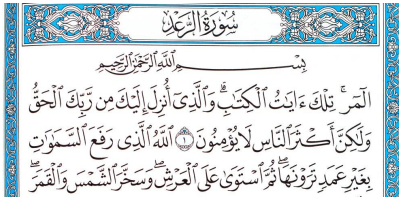 سُورَةُ الرَّعْدِ
بِسْمِ اللَّهِ الرَّحْمَٰنِ الرَّحِيمِ
الٓمٓر ۚ تِلْكَ ءَايَٰتُ الْكِتَٰبِ ۗ وَالَّذِىٓ أُنزِلَ إِلَيْكَ مِن رَّبِّكَ الْحَقُّ
وَلَٰكِنَّ أَكْثَرَ النَّاسِ لَا يُؤْمِنُونَ ١ اللَّهُ الَّذِى رَفَعَ السَّمَٰوَٰتِ
بِغَيْرِ عَمَدٍ تَرَوْنَهَا ۖ ثُمَّ اسْتَوَىٰ عَلَى الْعَرْشِ ۖ وَسَخَّرَ الشَّمْسَ وَالْقَمَرَ ۖ